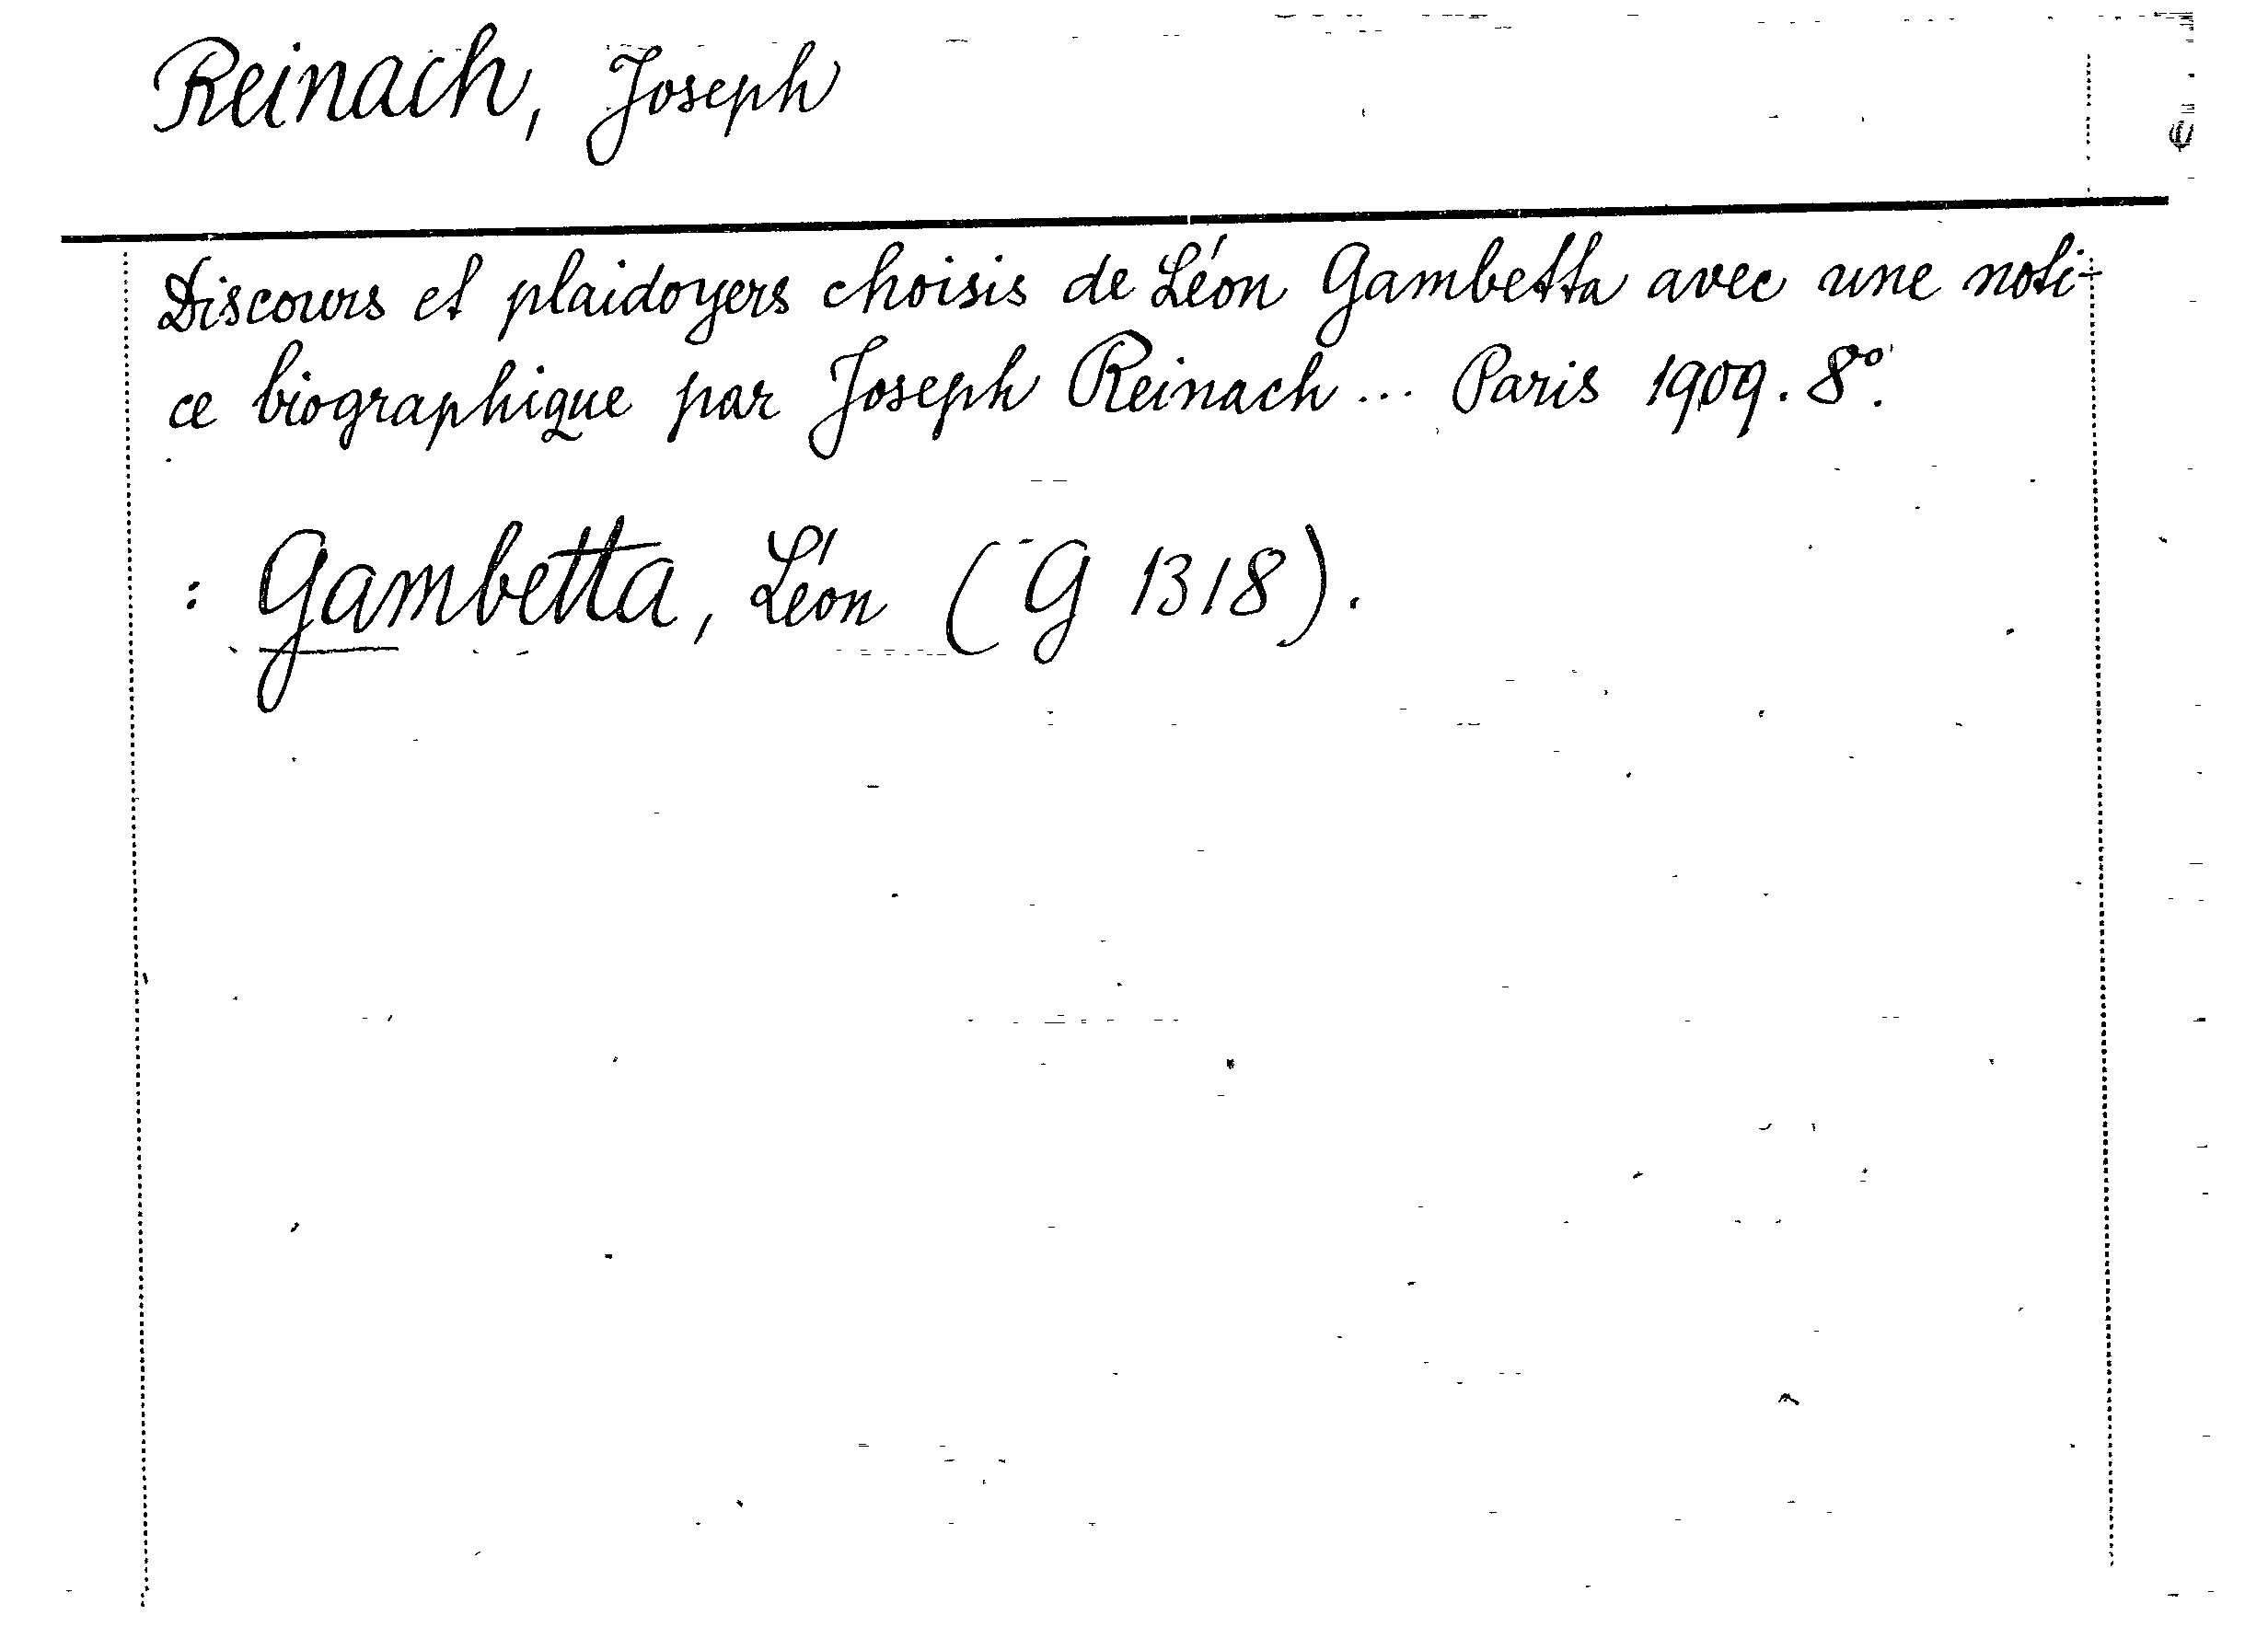 Reinach, Joseph
Discours et plaidoyers choisis de Léon Gambetta avec une noti-
ce biographique par Joseph Reinach... Paris 1909. 8°.
: Gambetta, Léon (G 1318).